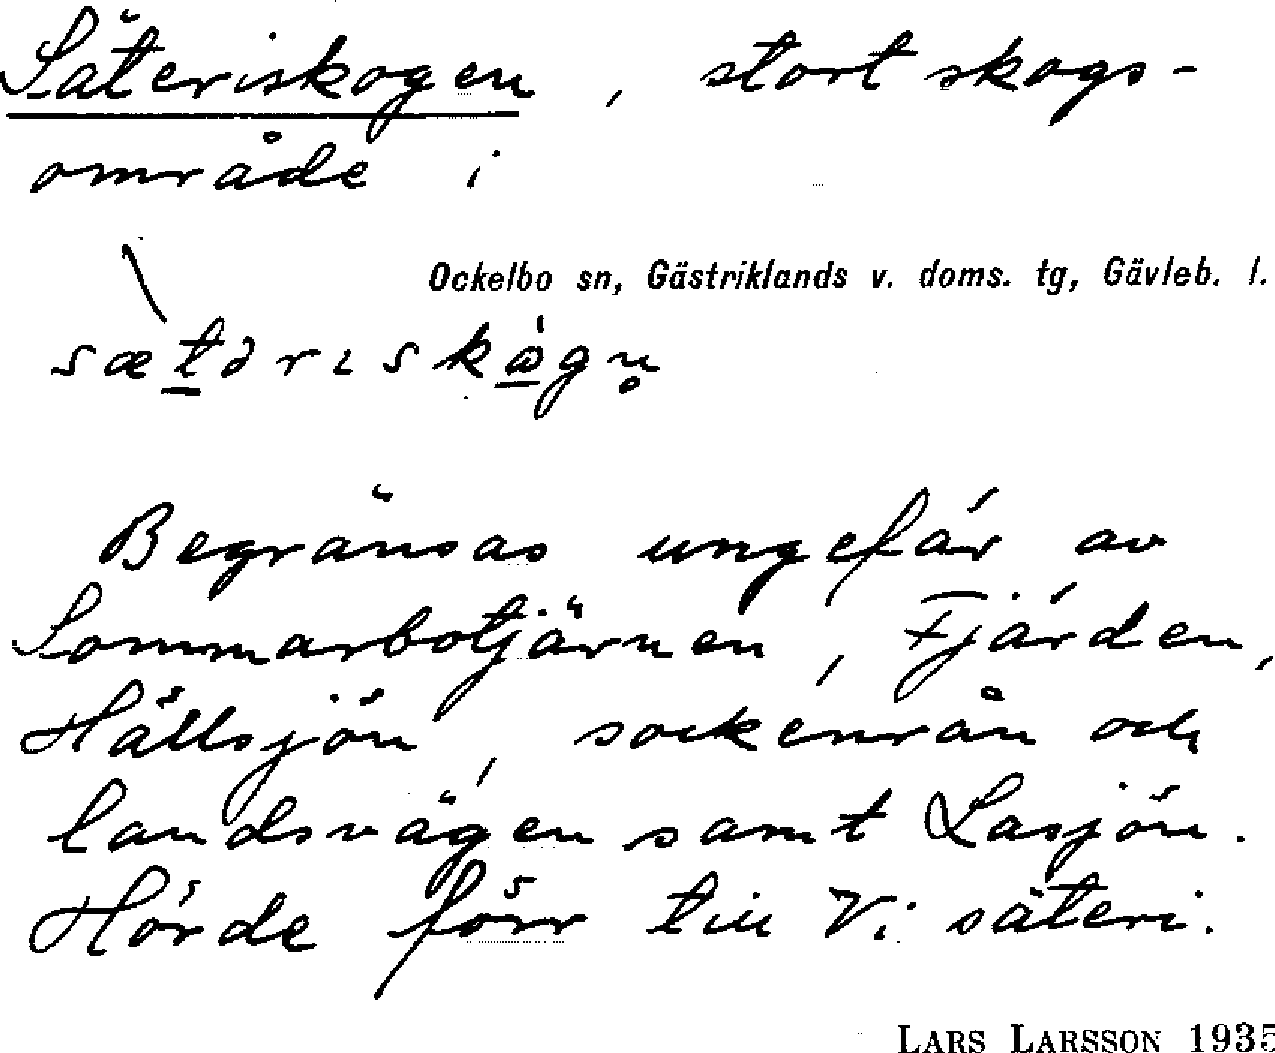 Säteriskogen, stort skogs-
område i
Ockelbo sn, Gästriklands v. doms. tg, Gävleb. l.
sætəriskògn̥
Begränsas ungefär av
Sommarbotjärnen, Fjärden,
Hällsjön, sockenrån och
landsvägen samt Lasjön.
Hörde förr till Vi säteri.
LARS LARSSON 1935